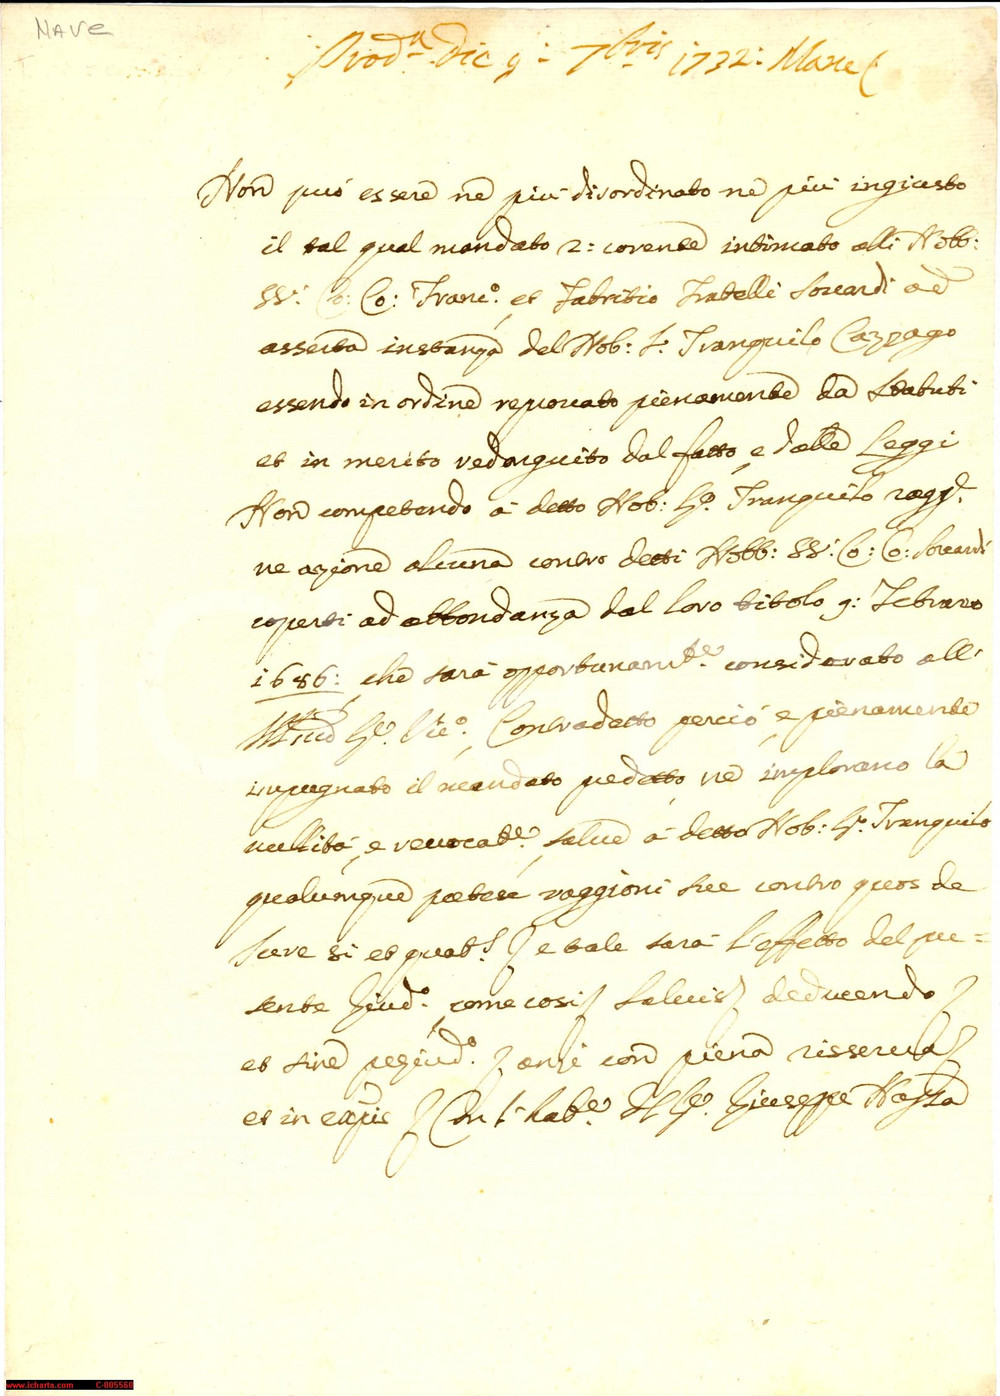 Nave
Prod.ª die 9: 7bris 1732: Mane
Non può essere ne più disordinato ne più ingiusto
il tal qual mandato 2: corente intimato alli Nobb:
SS.i Co: Co: Franc.º et Fabritio Fratelli Soncardi ad
asserta instanza del Nob: S.r Tranquilo Cazzago
essendo in ordine reprovato pienamente da Statuti
et in merito redarguito dal fatto, e dalle Leggi
Non competendo à detto Nob: Sr. Tranquilo ragg.
ne azione alcuna contro detti Nobb: SS.i Co: Co: Soncardi
coperti ad abbondanza dal loro titolo 9: Febraro
1686: che sarà opportunam.te considerato all'
Sr. Vic.º, Contradetto perciò, e pienamente
impugnato il mandato pedetto ne implorano la
nullità, e revocat.e, salve à detto Nob: Sr. Tranquilo
qualunque pretese raggioni sue contro quos de
Jure si et quat.s e tale sarà l'effetto del pre=
sente Giud.º, come così Salvis deducendo
et sine pregiud.º anzi con piena risserva
et in expis Con l'hab.e Sr. Giuseppe
www.icharta.com C-005560